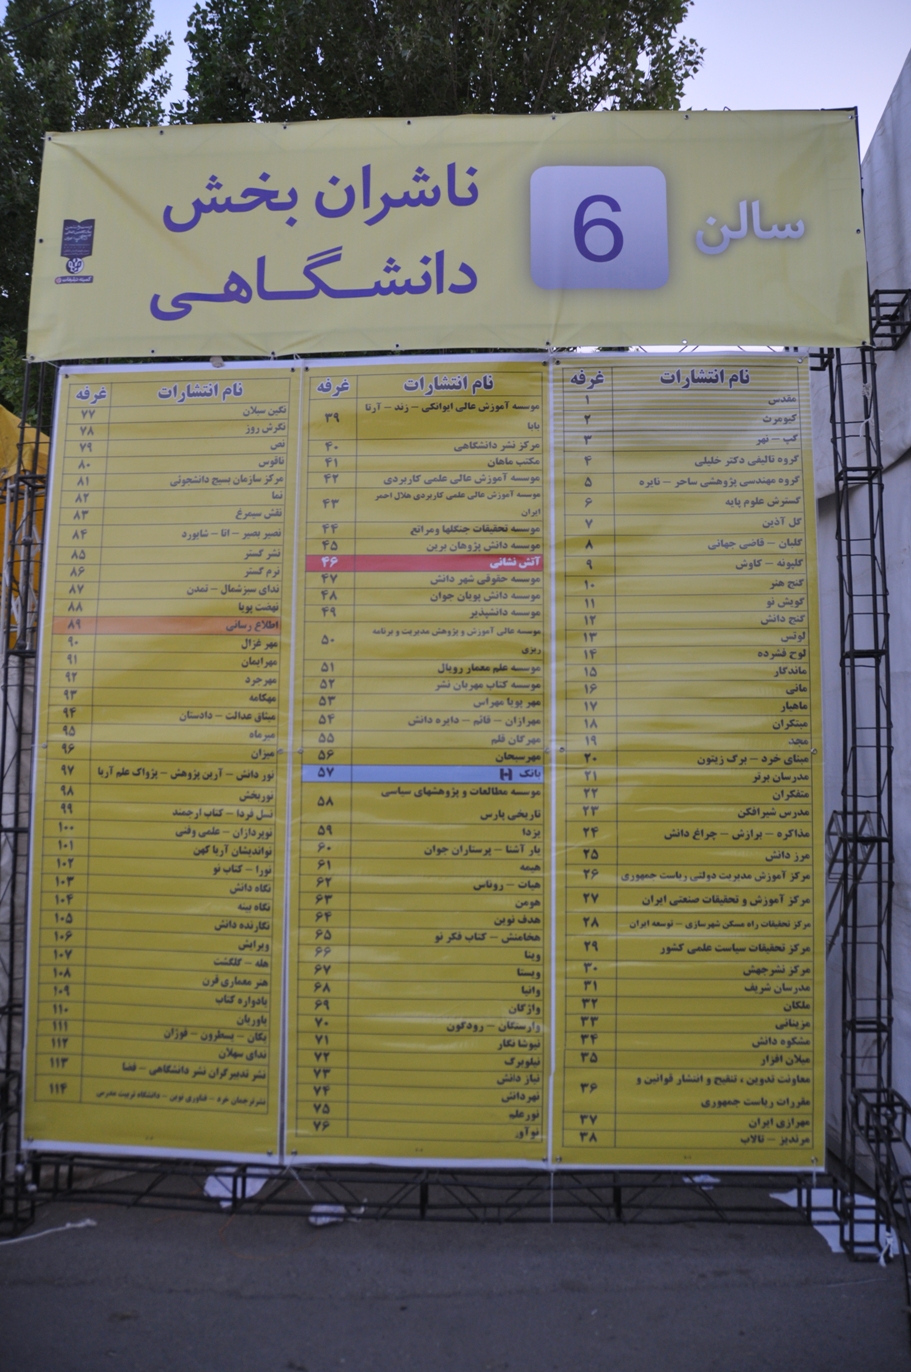 سالن
6
ناشران بخش
دانشگاهی
نام انتشارات غرفه
مقدس ۱
کیومرث ۲
کپ - نهر ۳
گروه تالیفی دکتر خلیلی ۴
گروه مهندسی پژوهشی ساحر - نایره ۵
گسترش علوم پایه ۶
گل آذین ۷
گلبان - قاضی جهانی ۸
گلپونه - کاوش ۹
گنج هنر ۱۰
گویش نو ۱۱
گنج دانش ۱۲
لوتس ۱۳
لوح فشرده ۱۴
ماندگار ۱۵
مانی ۱۶
ماهیار ۱۷
مبتکران ۱۸
مجد ۱۹
مبنای خرد - برگ زیتون ۲۰
مدرسان برتر ۲۱
متفکران ۲۲
مدرس شیرافکن ۲۳
مذاکره - برازش - چراغ دانش ۲۴
مرز دانش ۲۵
مرکز آموزش مدیریت دولتی ریاست جمهوری ۲۶
مرکز آموزش و تحقیقات صنعتی ایران ۲۷
مرکز تحقیقات راه مسکن شهرسازی - توسعه ایران ۲۸
مرکز تحقیقات سیاست علمی کشور ۲۹
مرکز نشرجهش ۳۰
مدرسان شریف ۳۱
ملکان ۳۲
مزینانی ۳۳
مشکوه دانش ۳۴
میلان افزار ۳۵
معاونت تدوین ، تنقیح و انتشار قوانین و
مقررات ریاست جمهوری ۳۶
مهرازی ایران ۳۷
مرندیز - تالاب ۳۸
نام انتشارات غرفه
موسسه آموزش عالی ایوانکی - زند - آرتا
بابا ۳۹
مرکز نشر دانشگاهی ۴۰
مکتب ماهان ۴۱
موسسه آموزش عالی علمی کاربردی ۴۲
موسسه آموزش عالی علمی کاربردی هلال احمر
ایران ۴۳
موسسه تحقیقات جنگلها ومراتع ۴۴
موسسه دانش پژوهان برین ۴۵
آتش نشانی ۴۶
موسسه حقوقی شهر دانش ۴۷
موسسه دانش پویان جوان ۴۸
موسسه دانشپذیر ۴۹
موسسه عالی آموزش و پژوهش مدیریت و برنامه
ریزی ۵۰
موسسه علم معمار رویال ۵۱
موسسه کتاب مهربان نشر ۵۲
مهر پویا مهراس ۵۳
مهرازان - قائم - دایره دانش ۵۴
مهرگان قلم ۵۵
مهرسبحان ۵۶
بانک ۵۷
موسسه مطالعات و پژوهشهای سیاسی
تاریخی پارس ۵۸
یزدا ۵۹
یار آشنا - پرستاران جوان ۶۰
هیمه ۶۱
هیات - روناس ۶۲
هومن ۶۳
هدف نوین ۶۴
هخامنش - کتاب فکر نو ۶۵
وینا ۶۶
ویستا ۶۷
وانیا ۶۸
واژگان ۶۹
وارستگان - رودگون ۷۰
نیوشا نگار ۷۱
نیلوبرگ ۷۲
نیاز دانش ۷۳
نهردانش ۷۴
نورعلم ۷۵
نوآور ۷۶
نام انتشارات غرفه
نگین سبلان ۷۷
نگرش روز ۷۸
نص ۷۹
ناقوس ۸۰
مرکز سازمان بسیج دانشجوئی ۸۱
نما ۸۲
نقش سیمرغ ۸۳
نصیر بصیر - آنا - شاپورد ۸۴
نشر گستر ۸۵
نرم گستر ۸۶
ندای سبزشمال - تمدن ۸۷
نهضت پویا ۸۸
اطلاع رسانی ۸۹
مهر غزال ۹۰
مهرایمان ۹۱
مهرجرد ۹۲
مهکامه ۹۳
میثاق عدالت - دادستان ۹۴
میرماه ۹۵
میزان ۹۶
نور دانش - آرین پژوهش - پژواک علم آریا ۹۷
نوربخش ۹۸
نسل فردا - کتاب ارجمند ۹۹
نوپردازان - علمی وفنی ۱۰۰
نواندیشان آریا کهن ۱۰۱
نورا - کتاب نو ۱۰۲
نگاه دانش ۱۰۳
نگاه بینه ۱۰۴
نگارنده دانش ۱۰۵
ویرایش ۱۰۶
هله - گلگشت ۱۰۷
هنر معماری قرن ۱۰۸
یادواره کتاب ۱۰۹
یاوریان ۱۱۰
یکان - بسطرون - فوژان ۱۱۱
ندای سهلان ۱۱۲
نشر تدبیرگران نشر دانشگاهی - فضا ۱۱۳
نشرترجمان خرد - فناوری نوین - دانشگاه تربیت مدرس ۱۱۴